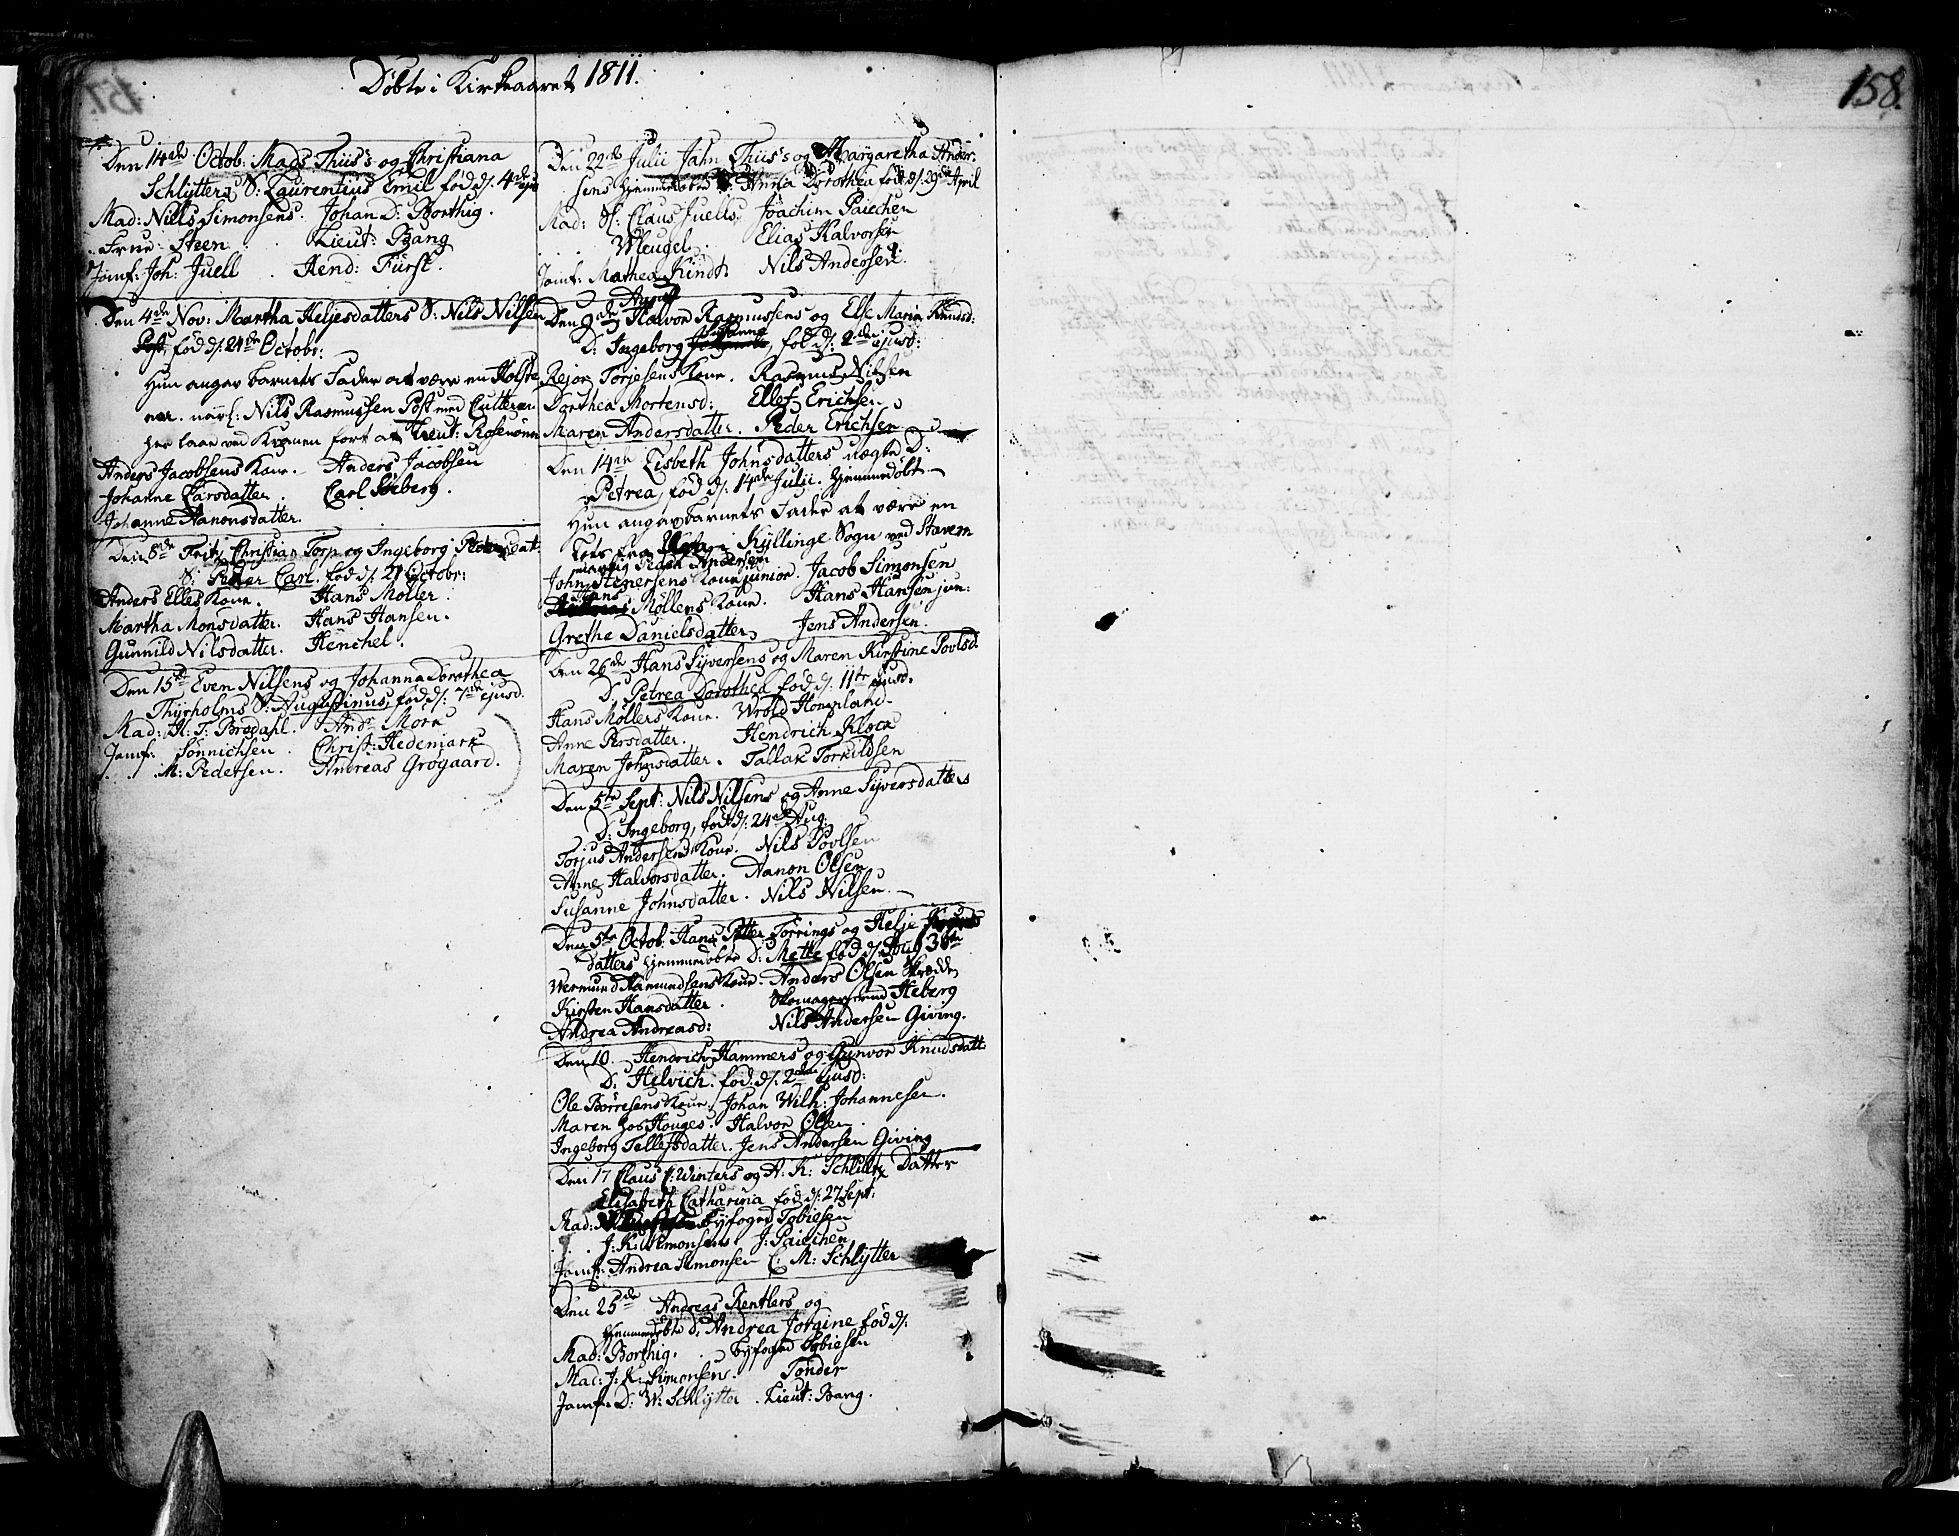 Døbte i Kirkeaaret 1811.
158.
Den 14de Octob: Mads Thiis's og Christiana
Schlytters S: Laurentius Emil fød d/: 4de ejus
Mad: Niels Simonsens. Johan D: Borthig.
Frue Steen. Lieut: Bang
Jomf: Joh: Juell. Hend: Fürst.
Den 4de Nov: Martha Heljesdatters S: Nils Nilsen
Post, fød d/: 21de Octobr:
Hun angav Barnets Fader at være en Holste
ner. navnl: Nils Rasmussen Post med Cutteren
her laae ved Kranen ført af Lieut: Rosenønn
Anders Jacobsens Kone. Anders Jacobsen
Johanne Larsdatter. Carl Søeberg.
Johanne Aanonsdatter.
Den 8de Fritz Christian Torp og Ingeborg Pedersdat:
S: Peder Carl. fød d/: 21 Octobr:
Anders Elles Kone. Hans Møller.
Martha Monsdatter. Hans Hansen.
Gunnild Nilsdatter. Henchel.
Den 15de Even Nilsens og Johanna Dorothea
Thyrholms S: Augustinus, fød d/: 7de ejusd.
Mad: H: T: Brodahl. And: Mork
Jomf: Sønnichsen. Christ: Hedemark
M: Pedersen. Andreas Grøgaard.
Den 22de Julii Jahn Thiis's og Margaretha Ander:
sens hjemmedøbte D: Anna Dorothea fød d/: 29de April
Mad: Sl: Claus Juells. Joachim Paiechen
Wleugel. Elias Halvorsen
Jomf: Mathea Kindt. Nils Andersen.
August
Den 9de Halvor Rasmussens og Else Maria Knudsd:
D: Ingeborg Susanne, fød d/: 2de ejusd:
Rejor Torjesens Kone. Rasmus Nilsen
Dorthea Mortensd: Ellef Erichsen
Maren Andersdatter. Peder Erichsen
Den 14de Lisbeth Johnsdatters uægte D:
Petrea, fød d/: 14de Julii. hjemmedøbt
Hun angav Barnets Fader at være en
Lots fra Kyllinge Sogn ved Stavern
navnlig Peder Andersen
John Stenersens Kone junior. Jacob Simonsen
Hans Møllers Kone. Hans Hansen jun:
Grethe Danielsdatter. Jens Andersen.
Den 26de Hans Syversens og Maren Kirstine Povlsd.
D: Petrea Dorothea fød d/: 11te ejusd.
Hans Møllers Kone. Wrold Homland.
Anne Persdatter. Hendrich Klock
Maren Johnsdatter. Tallak Torkildsen
Den 5te Sept: Nils Nilsens og Anne Syversdatters
D: Ingeborg, fød d/: 24de Aug.
Torjus Andersens Kone. Nils Povlsen
Anne Halvorsdatter. Aanon Olsen
Susanne Johnsdatter. Nils Nilsen.
Den 5te Octob. Hans Peter Torrings og Helje
datters hjemmedøbte D: Mette fød d/: 30te
Wermund Aamundsens Kone. Anders Olsen Skrædder
Kirsten Hansdatter. Skomagersvend Heberg
Andrea Andreasd: Nils Andersen Giving.
Den 10. Hendrich Hammers og Gunvor Knudsdatt:
D: Helvich. fød d/: 2den ejusd:
Ole Børresens Kone. Johan Wilh: Johannesen.
Maren hos Houges. Halvor Olsen.
Ingeborg Tellefsdatter. Jens Andersen Giving
Den 17 Claus C: Winters og A. K: Schlytt: Datter
Elisabeth Catharina fød d/: 27 Sept:
Mad: Byfoged Tobiesen
J. K. Simonsens. J: Paiechen
Jomf: Andrea Simonsen C: M: Schlytter
Den 25de Andreas Rentlers og
hjemmedøbte D: Andrea Jorgine fød d/:
Mad: Borthig. Byfoged Tobiesen
Mad: J. K. Simonsens. Tønder
Jomf: D: W: Schlytter. Lieut: Bang.